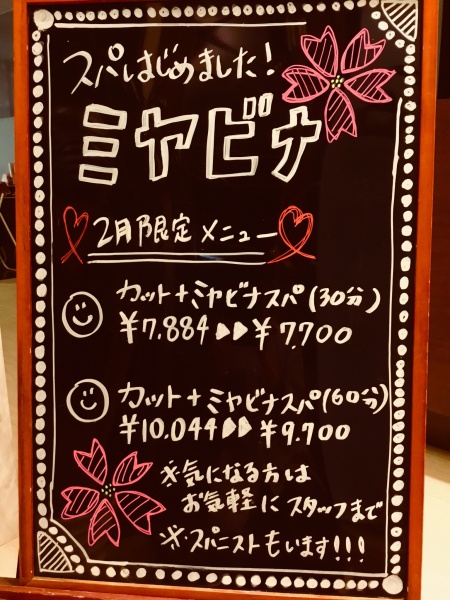 スパはじめました!
ミヤビナ
2月限定メニュー
カット+ミヤビナスパ(30分)
¥7,884▶▶¥7,700
カット+ミヤビナスパ(60分)
¥10,044▶▶¥9,700
※気になる方は
お気軽にスタッフまで
※スパニストもいます!!!